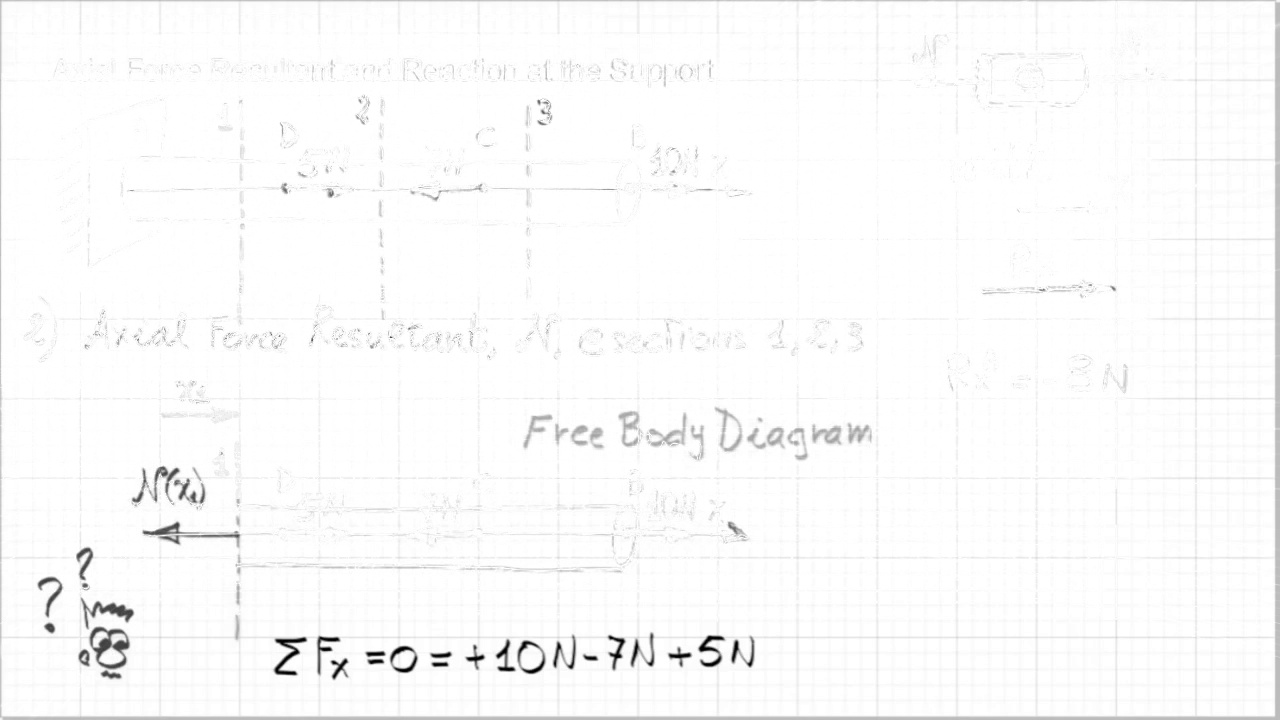 Axial Force Resultant and Reaction at the Support
1 2 3
D C B
5N 7N 10N x
2) Axial Force Resultant, N, @ sections 1, 2, 3
x₁
Free Body Diagram
1 D B
N(x₁) 5N 7N 10N x
? ?
ΣFx = 0 = +10N - 7N + 5N
N